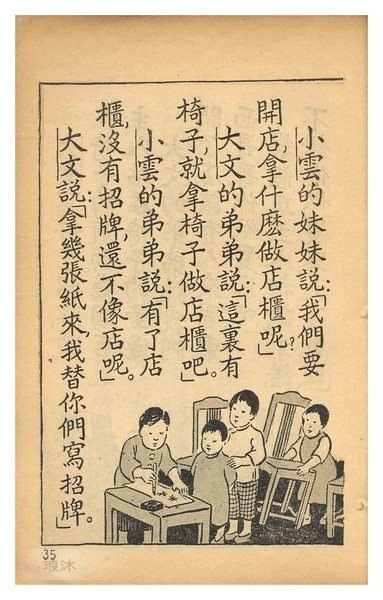 小雲的妹妹說：「我們要
開店，拿什麽做店櫃呢？」
大文的弟弟說：「這裏有
椅子，就拿椅子做店櫃吧。」
小雲的弟弟說：「有了店
櫃，沒有招牌，還不像店呢。」
大文說：「拿幾張紙來，我替你們寫招牌。」
35
琅沐